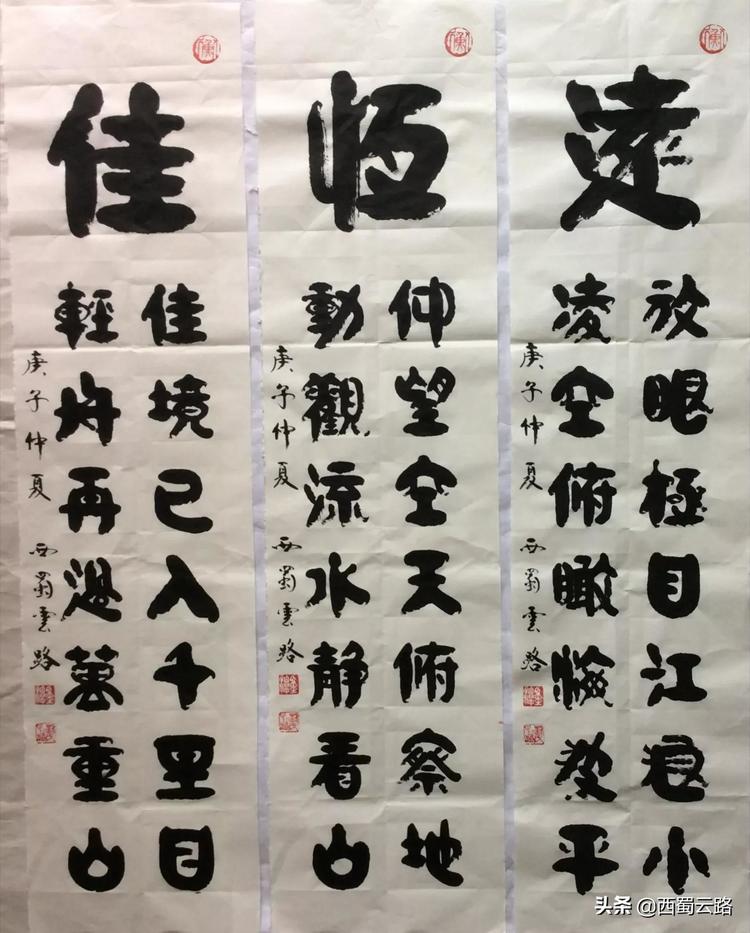 放眼極目江小
凌空俯瞰平
庚子仲夏 西蜀雲路
恆
仰望空天俯察地
動觀流水静看山
庚子仲夏 西蜀雲路
佳
佳境已入千里目
輕舟再過萬重山
庚子仲夏 西蜀雲路
头条 @西蜀云路